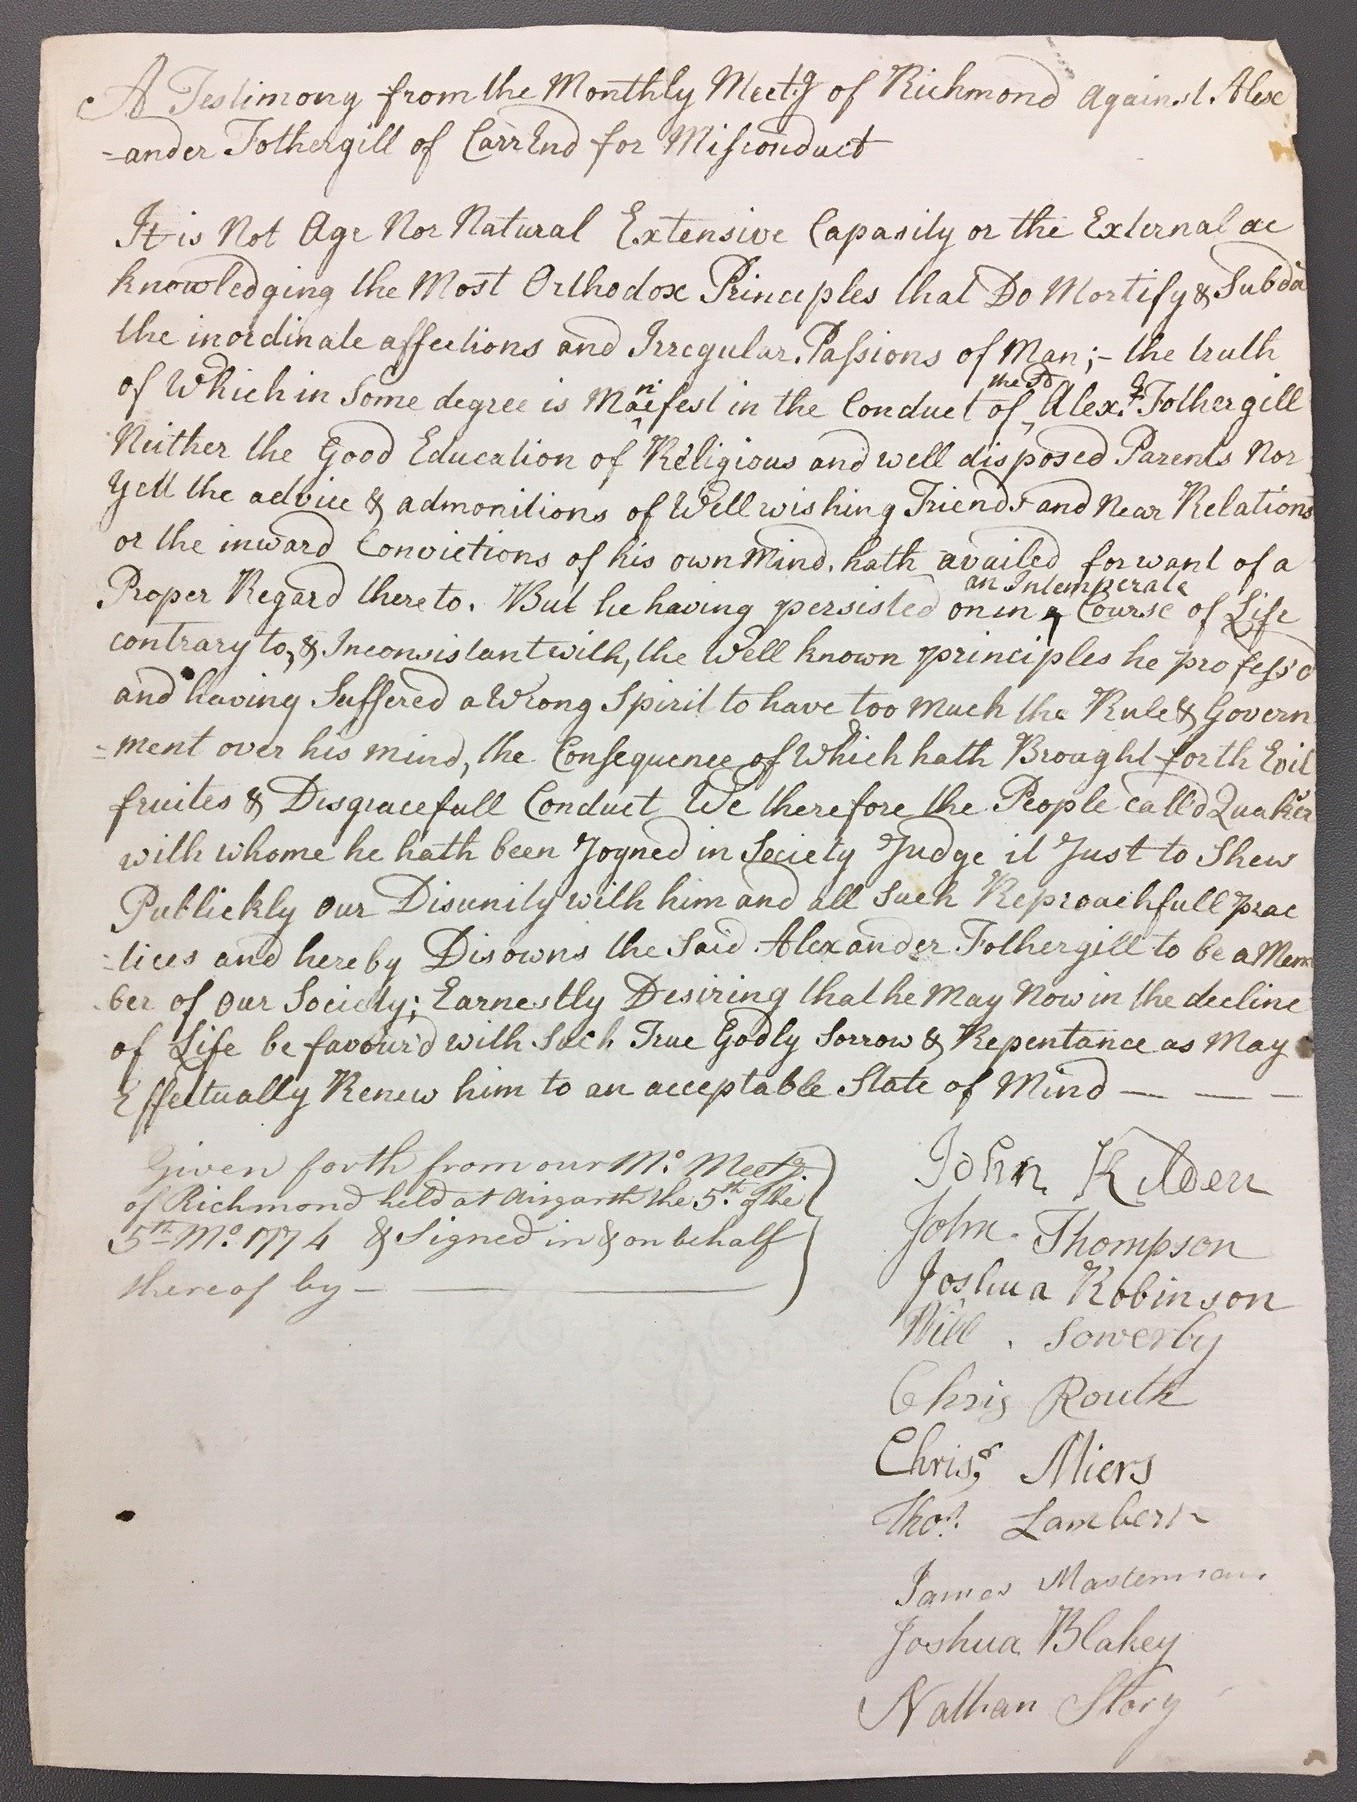 A Testimony from the Monthly Meetg of Richmond Against Alex
=ander Fothergill of CarrEnd for Misconduct
It is Not Age Nor Natural Extensive Capasity or the External ac
knowledging the Most Orthodox Principles that Do Mortify & Subdu
the inordinate affections and Irregular Passions of Man;- the truth
of Which in Some degree is Manifest in the Conduct of the sd Alexr. Fothergill
Neither the Good Education of Religious and well disposed Parents Nor
Yett the advice & admonitions of Well wishing Friends and Near Relations
or the inward Convictions of his own Mind, hath availed for want of a
Proper Regard thereto. But he having persisted on in an Intemperate Course of Life
contrary to, & Inconsistant with, the well known principles he profess'd
and having Suffered a Wrong Spirit to have too much the Rule & Govern
=ment over his mind, the Consequence of Which hath Brought forth Evil
fruites & Disgracefull Conduct We therefore the People call'd Quakers
with whome he hath been Joyned in Society Judge it Just to Shew
Publickly our Disunity with him and all such Reproachfull prac
=tices and hereby Disowns the Said Alexander Fothergill to be a Mem
=ber of our Society; Earnestly Desiring that he May Now in the decline
of Life be favour'd with Such True Godly Sorrow & Repentance as May
Effectually Renew him to an acceptable State of Mind — — —
Given forth from our Mo. Meetg
of Richmond held at Airgarth the 5th of the
5th Mo. 1774 & Signed in & on behalf
thereof by — — —
John Kilden
John Thompson
Joshua Robinson
Will. Sowerby
Chris Routh
Chrisr. Miers
Thos. Lambert
James Masterman
Joshua Blakey
Nathan Story